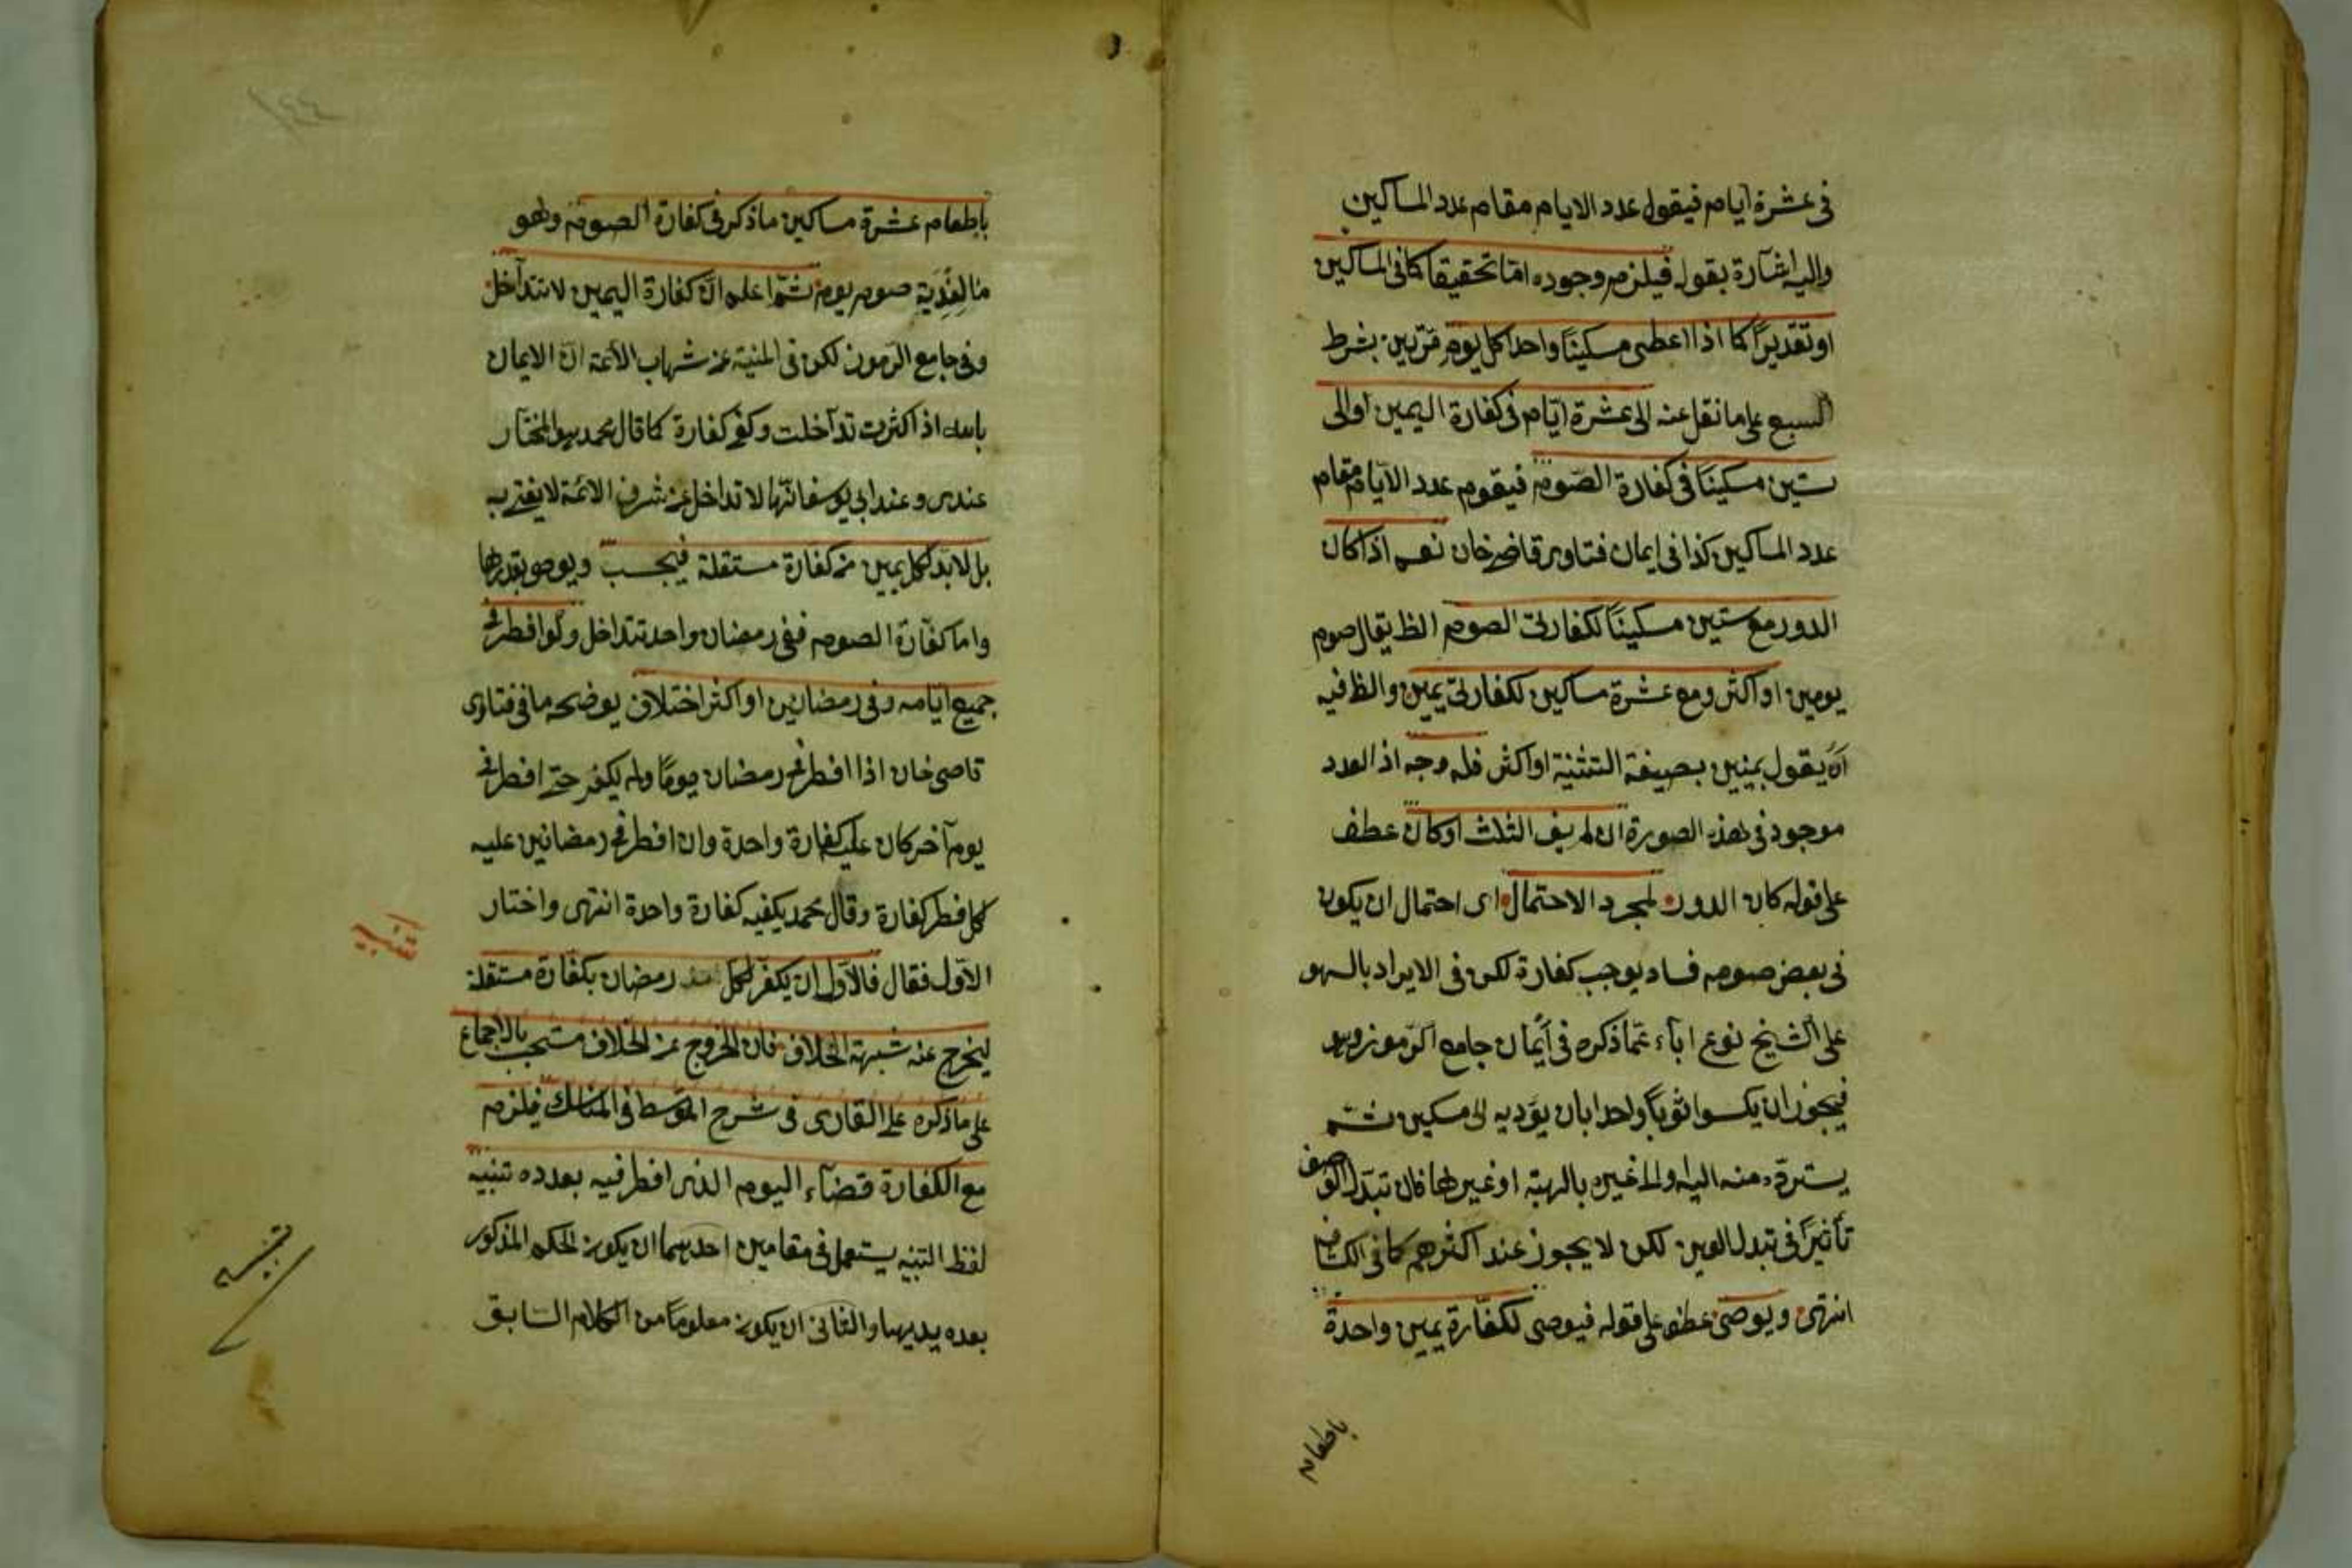 فى عشرة ايام فيقول عدد الايام مقام عدد المساكين
واليه اشارة بقوله فيلزم وجوده اما تحقيقا كما فى المساكين
او تقديرًا كما اذا اعطى مسكينًا واحدا كل يوم مرّتين بشرط
السبع على ما نقل عنه الى عشرة ايّام فى كفارة اليمين او الى
ستين مسكينًا فى كفارة الصّوم فيقوم عدد الايّام مقام
عدد المساكين كذا فى ايمان فتاوى قاضيخان نعم اذا كان
الدور مع ستين مسكينًا لكفارتى الصوم الظ يقال صوم
يومين او اكثر ومع عشرة مساكين لكفارتى يمين والظ فيه
ان يقول يمينين بصيغة التثنية او اكثر فله وجه اذ العدد
موجود فى هذه الصورة ان لم يف الثلث او كان عطف
على قوله كان الدور لمجرد الاحتمال اى احتمال ان يكون
فى بعض صومه فساد يوجب كفارة لكن فى الايراد بالسهو
على الشيخ نوع اباء عمّا ذكره فى أيمان جامع الرّموز وهو
فيجوز ان يكسو ثوبًا واحدا بان يؤديه الى مسكين ثم
يستردّه منه اليه والى غيره بالهبة او غيرها فان تبدّل الوصف
تأثيرًا فى تبدل العين لكن لا يجوز عند اكثرهم كما فى الكشاف
انتهى ويوصى عطف على قوله فيوصى لكفّارة يمين واحدة
باطعام
باطعام عشرة مساكين ما ذكر فى كفارة الصوم وهو
مالفدية صوم يوم ثمّ اعلم انّ كفارة اليمين لا تتداخل
وفى جامع الرّموز لكن فى المنية عن شهاب الائمة انّ الايمان
بالله اذا كثرت تداخلت وكفى كفارة كما قال محمد وهو المختار
عندى وعند ابى يوسف انّها لا تداخل عن شرف الائمة لا يفتى به
بل لا بدّ لكل يمين من كفّارة مستقلة فيجب ويوصى بقدرها
واما كفّارة الصوم ففى رمضان واحد تتداخل ولو افطر فى
جميع ايّامه وفى رمضانين او اكثر اختلاف يوضحه ما فى فتاوى
قاضى خان اذا افطر فى رمضان يومًا ولم يكفر حتى افطر فى
يوم آخر كان عليه كفارة واحدة وان افطر فى رمضانين عليه
لكل فطر كفارة وقال محمد يكفيه كفارة واحدة انتهى واختار
الاوّل فقال فالاولى ان يكفّر لكل رمضان بكفارة مستقلة
ليخرج عنه شبهة الخلاف فان الخروج عن الخلاف مستحب بالاجماع
على ما ذكره على القارى فى شرح المتوسط فى المناسك فيلزم
مع الكفارة قضاء اليوم الذى افطر فيه بعدده تنبيه
لفظ التنبيه يستعمل فى مقامين احدهما ان يكون الحكم المذكور
بعده بديهيا والثانى ان يكون معلومًا من الكلام السّابق
تنبيه